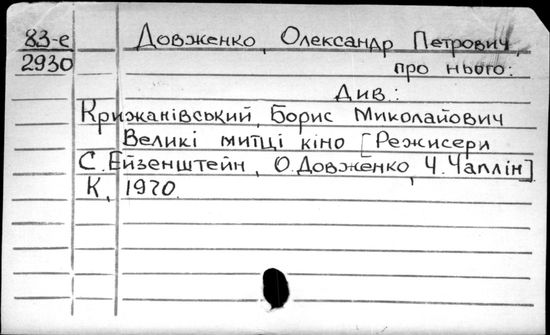 83-е Довженко, Олександр Петрович,
2930 про нього:
Див.:
Крижанівський, Борис Миколайович
Великі митці кіно [Режисери
С. Ейзенштейн, О. Довженко, Ч. Чаплін]
К., 1970.